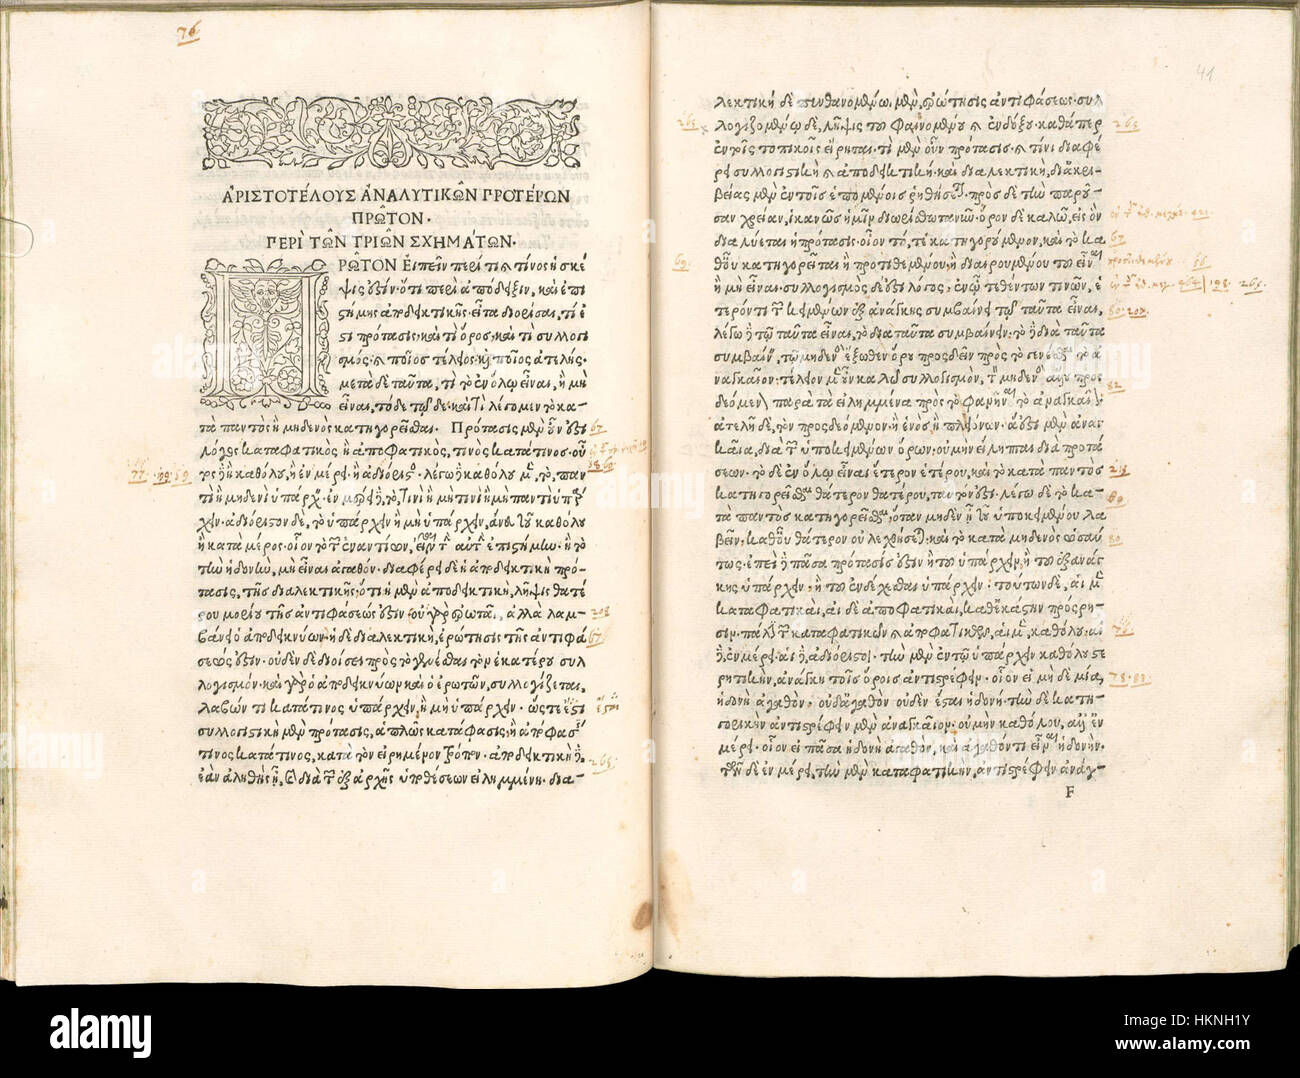 76
ἈΡΙΣΤΟΤΈΛΟΥΣ ἈΝΑΛΥΤΙΚΩ͂Ν ΠΡΟΤΈΡΩΝ
ΠΡΩ͂ΤΟΝ·
ΠΕΡῚ ΤΩ͂Ν ΤΡΙΩ͂Ν ΣΧΗΜΆΤΩΝ·
ΡΩ͂ΤΟΝ Εἰπεῖν περὶ τί καὶ τίνος ἡ σκέ
ψις ὅτιν· ὅτι περὶ ἀπόδειξιν, καὶ ἐπι
στήμης ἀποδεικτικῆς· εἶτα διορίσαι, τί ἐ
στι πρότασις· καὶ τί ὅρος· καὶ τί συλλογι
σμός· καὶ ποῖος τέλειος· καὶ ποῖος ἀτελής·
μετὰ δὲ ταῦτα, τί τὸ ἐν ὅλῳ εἶναι, ἢ μὴ
εἶναι, τόδε τῷδε· καὶ τί λέγομεν τὸ κα-
τὰ παντὸς ἢ μηδενὸς κατηγορεῖσθαι. Πρότασις μὲν οὖν ἐστὶ 67
λόγος καταφατικὸς ἢ ἀποφατικός, τινὸς κατά τινος· οὗ
τος ἢ καθόλου, ἢ ἐν μέρει, ἢ ἀδιόριστος· λέγω ἢ καθόλου μὲν, τὸ, παν
τὶ ἢ μηδενὶ ὑπάρχειν· ἐν μέρει ἢ, τὸ, τινὶ ἢ μὴ τινὶ ἢ μὴ παντὶ ὑπάρ
χειν· ἀδιόριστον δὲ, τὸ ὑπάρχειν ἢ μὴ ὑπάρχειν, ἄνευ τοῦ καθόλου
ἢ κατὰ μέρος· οἷον τὸ τῶν ἐναντίων, εἶναι τὴν αὐτὴν ἐπιστήμην· ἢ τὸ
τὴν ἡδονὴν, μὴ εἶναι ἀγαθόν· διαφέρει δὲ ἡ ἀποδεικτικὴ πρό-
τασις, τῆς διαλεκτικῆς· ὅτι ἡ μὲν ἀποδεικτικὴ, λῆψις θατέ
ρου μορίου τῆς ἀντιφάσεώς ἐστιν· οὐ γὰρ ἐρωτᾷ, ἀλλὰ λαμ- 208
βάνει ὁ ἀποδεικνύων· ἡ δὲ διαλεκτικὴ, ἐρώτησις τῆς ἀντιφά 67
σεώς ἐστιν· οὐδὲν δὲ διοίσει πρὸς τὸ γενέσθαι τὸν ἑκατέρου συλ
λογισμόν· καὶ γὰρ ὁ ἀποδεικνύων καὶ ὁ ἐρωτῶν, συλλογίζεται,
λαβών τι κατά τινος ὑπάρχειν, ἢ μὴ ὑπάρχειν· ὥστε ἔσται
συλλογιστικὴ μὲν πρότασις, ἁπλῶς κατάφασις, ἢ ἀπόφασις
τινὸς κατά τινος, κατὰ τὸν εἰρημένον τρόπον· ἀποδεικτικὴ ἢ,
ἐὰν ἀληθὴς ᾖ, καὶ διὰ τῶν ἐξ ἀρχῆς ὑποθέσεων εἰλημμένη· δια- 265
41
λεκτικὴ δὲ πυνθανομένῳ, μὲν, ἐρώτησις ἀντιφάσεως· συλ
λογιζομένῳ δὲ, λῆψις τοῦ φαινομένου καὶ ἐνδόξου· καθάπερ 265
ἐν τοῖς τοπικοῖς εἴρηται. τί μὲν οὖν πρότασις· καὶ τίνι διαφέ
ρει συλλογιστικὴ καὶ ἀποδεικτικὴ· καὶ διαλεκτικὴ, δι ἀκρι-
βείας μὲν ἐν τοῖς ἑπομένοις ῥηθήσεται. πρὸς δὲ τὴν παροῦ-
σαν χρείαν, ἱκανῶς ἡμῖν διωρίσθω τανῦν· ὅρον δὲ καλῶ, εἰς ὃν
διαλύεται ἡ πρότασις· οἷον τό, τε κατηγορούμενον, καὶ τὸ κα 67
θ' οὗ κατηγορεῖται ἢ προστιθεμένου, ἢ διαιρουμένου τοῦ εἶναι
ἢ μὴ εἶναι· συλλογισμὸς δέ ἐστι λόγος, ἐν ᾧ τεθέντων τινῶν, ἕ
τερόν τι τῶν κειμένων ἐξ ἀνάγκης συμβαίνει τῷ ταῦτα εἶναι, 80·207
λέγω ἢ τῷ ταῦτα εἶναι, τὸ διὰ ταῦτα συμβαίνειν· τὸ ἢ διὰ ταῦτα
συμβαίνειν, τὸ μηδενὸς ἔξωθεν ὅρου προσδεῖν πρὸς τὸ γενέσθαι τὸ ἀ
ναγκαῖον· τέλειον μὲν οὖν καλῶ συλλογισμὸν, τὸν μηδενὸς ἄλλου προσ 82
δεόμενον παρὰ τὰ εἰλημμένα πρὸς τὸ φανῆναι τὸ ἀναγκαῖον·
ἀτελῆ δὲ, τὸν προσδεόμενον, ἢ ἑνὸς ἢ πλειόνων· ἅ ἐστι μὲν ἀναγ
καῖα, διὰ τῶν ὑποκειμένων ὅρων· οὐ μὴν εἴληπται διὰ προτά
σεων· τὸ δὲ ἐν ὅλῳ εἶναι ἕτερον ἑτέρου, καὶ τὸ κατὰ παντὸς 218
κατηγορεῖσθαι θάτερον θατέρου, ταυτόν ἐστι· λέγω δὲ τὸ κα- 80
τὰ παντὸς κατηγορεῖσθαι, ὅταν μηδὲν ᾖ τοῦ ὑποκειμένου λα
βεῖν, καθ' οὗ θάτερον οὐ λεχθήσεται· καὶ τὸ κατὰ μηδενὸς ὡσαύ 80
τως· ἐπεὶ ἢ πᾶσα πρότασίς ἐστιν ἢ τοῦ ὑπάρχειν, ἢ τοῦ ἐξ ἀνάγ
κης ὑπάρχειν, ἢ τοῦ ἐνδέχεσθαι ὑπάρχειν· τούτων δὲ, αἱ μὲν
καταφατικαὶ, αἱ δὲ ἀποφατικαὶ, καθ' ἑκάστην πρόσρη-
σιν· πάλιν τῶν καταφατικῶν καὶ ἀποφατικῶν, αἱ μὲν, καθόλου· αἱ
ἢ, ἐν μέρει· αἱ ἢ, ἀδιόριστοι· τὴν μὲν ἐν τῷ ὑπάρχειν καθόλου στε
ρητικὴν, ἀνάγκη τοῖς ὅροις ἀντιστρέφειν· οἷον εἰ μηδεμία, 78·88
ἡδονὴ ἀγαθὸν· οὐδ' ἀγαθὸν οὐδὲν ἔσται ἡδονή· τὴν δὲ κατη-
γορικὴν ἀντιστρέφειν μὲν ἀναγκαῖον· οὐ μὴν καθόλου, ἀλλ' ἐν
μέρει· οἷον εἰ πᾶσα ἡδονὴ ἀγαθὸν, καὶ ἀγαθόν τι εἶναι ἡδονήν·
τῶν δὲ ἐν μέρει, τὴν μὲν καταφατικὴν, ἀντιστρέφειν ἀνάγ-
F
alamy
Image ID: HKNH1Y
www.alamy.com